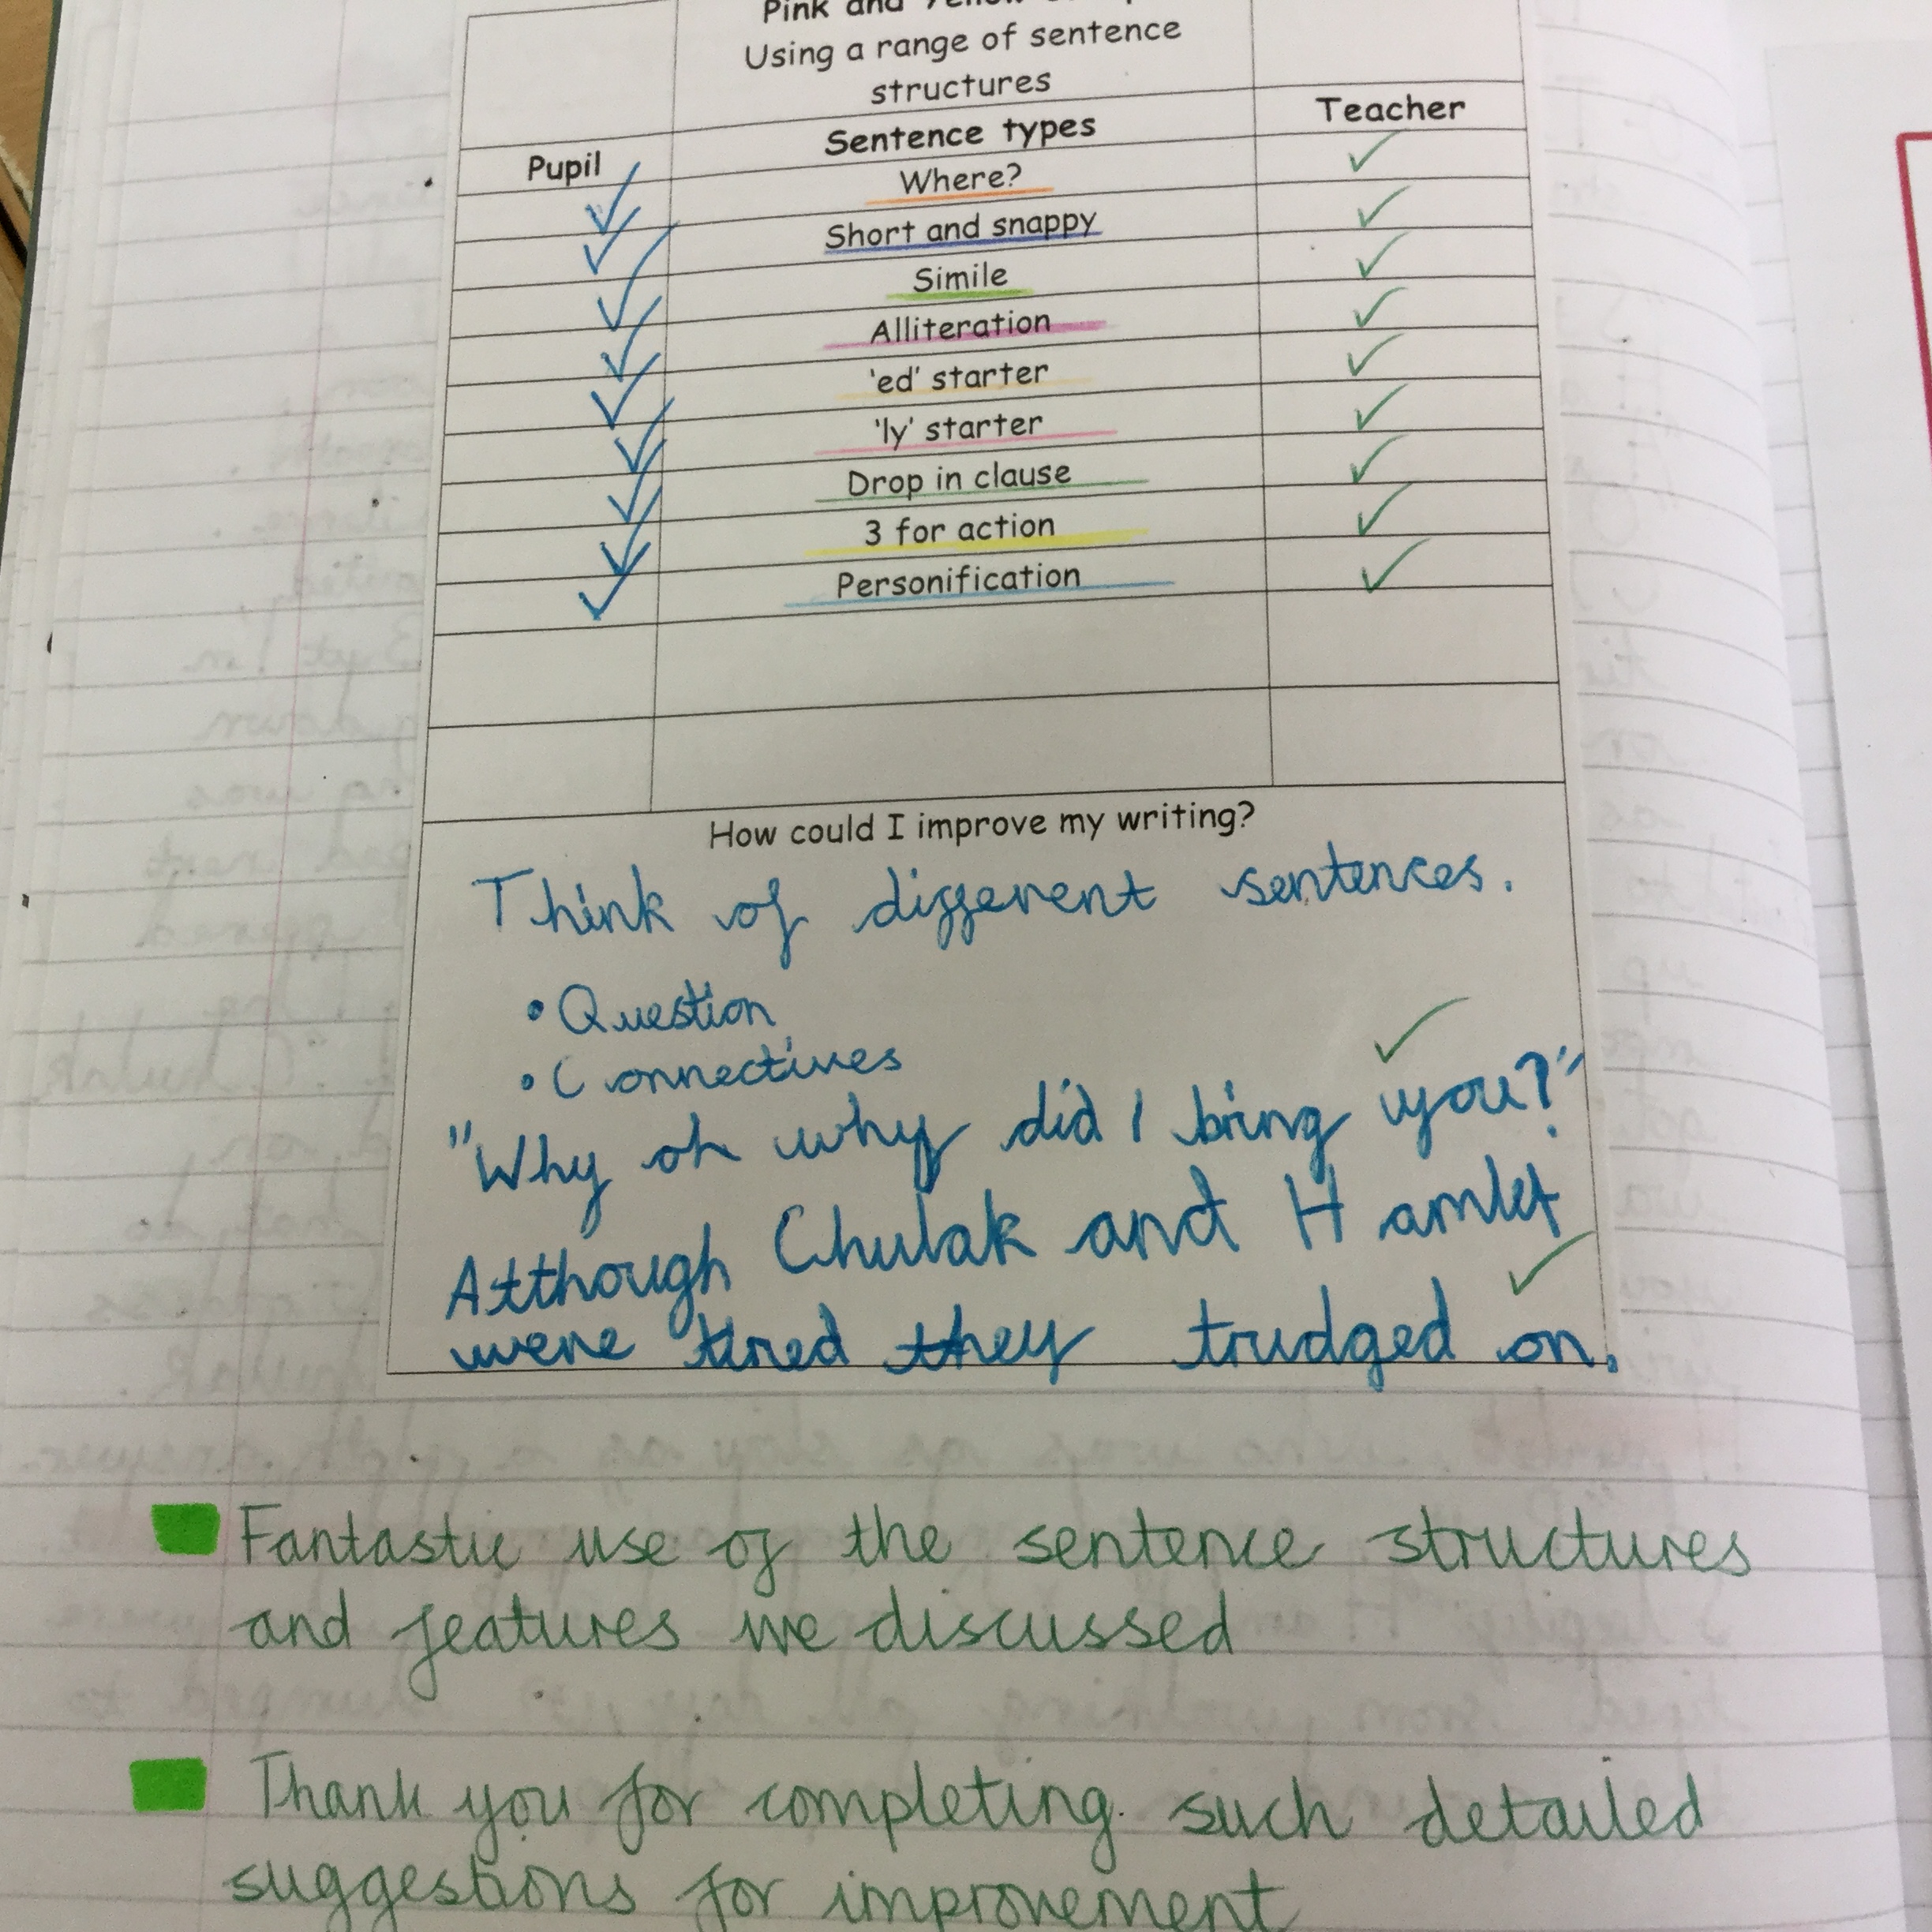 Pink and Yellow
Using a range of sentence
structures
Pupil Sentence types Teacher
Where?
Short and snappy
Simile
Alliteration
'ed' starter
'ly' starter
Drop in clause
3 for action
Personification
How could I improve my writing?
Think of different sentences.
• Question
• Connectives
"Why oh why did I bring you?"
Atthough Chulak and Hamlet
were tired they trudged on.
Fantastic use of the sentence structures
and features we discussed
Thank you for completing such detailed
suggestions for improvement